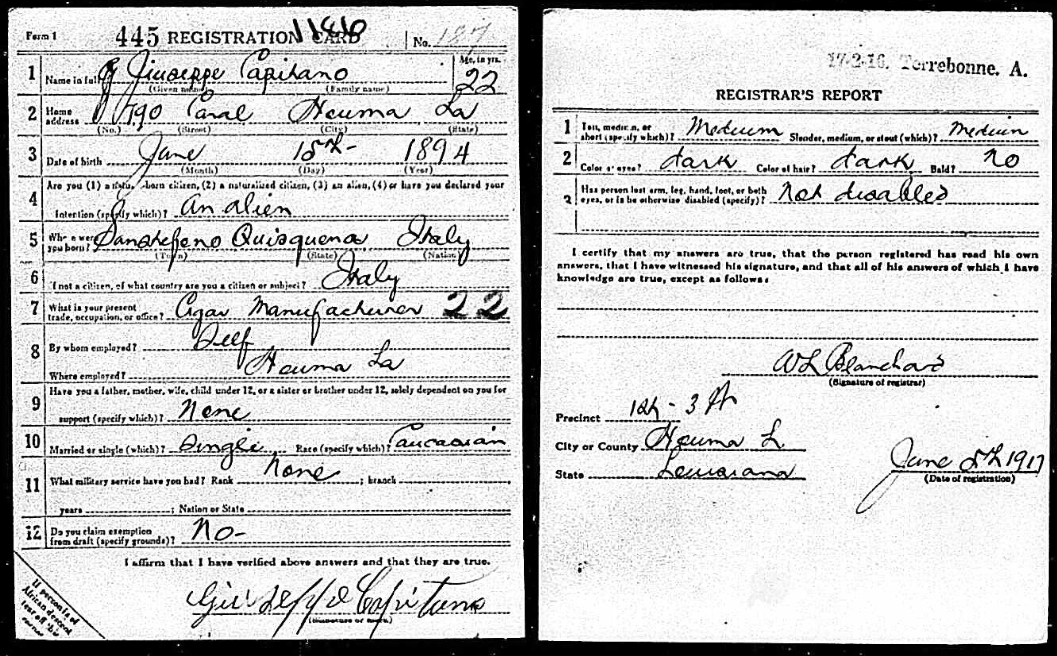 Form 1 445 REGISTRATION CARD 1146 No. 187
1 Name in full Giuseppe Capitano Age, in yrs. 22
(Given name) (Family name)
2 Home address 790 Canal Houma La
(No.) (Street) (City) (State)
3 Date of birth June 15th 1894
(Month) (Day) (Year)
4 Are you (1) a natural born citizen, (2) a naturalized citizen, (3) an alien, (4) or have you declared your
intention (specify which)? An alien
5 Where were you born? Sanstefano Quisquena Italy
(Town) (State) (Nation)
6 If not a citizen, of what country are you a citizen or subject? Italy
7 What is your present trade, occupation, or office? Cigar Manufacturer 22
8 By whom employed? Self
Where employed? Houma La
9 Have you a father, mother, wife, child under 12, or a sister or brother under 12, solely dependent on you for
support (specify which)? None
10 Married or single (which)? Single Race (specify which)? Caucasian
11 What military service have you had? Rank None ; branch
years ; Nation or State
12 Do you claim exemption from draft (specify grounds)? No-
I affirm that I have verified above answers and that they are true.
Giuseppe Capitano
(Signature or mark)
If person is of African descent tear off this corner
17-2-16. Terrebonne. A.
REGISTRAR'S REPORT
1 Tall, medium, or short (specify which)? Medium Slender, medium, or stout (which)? Medium
2 Color of eyes? dark Color of hair? dark Bald? No
3 Has person lost arm, leg, hand, foot, or both eyes, or is he otherwise disabled (specify)? Not disabled
I certify that my answers are true, that the person registered has read his own
answers, that I have witnessed his signature, and that all of his answers of which I have
knowledge are true, except as follows:
W L Blanchard
(Signature of registrar)
Precinct 1st - 3
City or County Houma L
State Louisiana
June 5th 1917
(Date of registration)